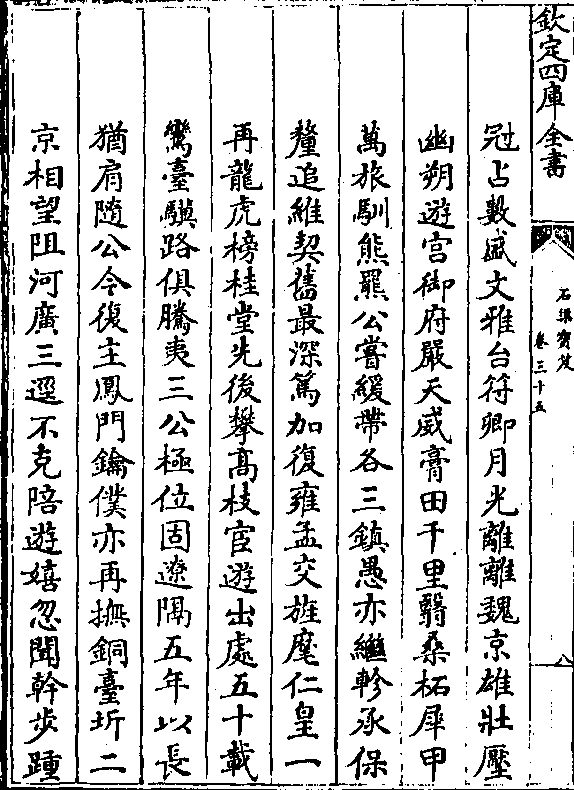 欽定四庫全書
石渠寳笈
卷三十五
冠占數盛文雅台符卿月光離離魏京雄壯壓
幽朔遊宫御府嚴天威膏田千里翳桑柘犀甲
萬旅馴熊羆公嘗緩帶各三鎮愚亦繼軫承保
釐追維契舊最深篤加復雍孟交旌麾仁皇一
再龍虎榜桂堂先後攀髙枝宦遊出處五十載
鸞臺驥路俱騰夷三公極位固遼隔五年以長
猶肩隨公今復主鳳門鑰僕亦再撫銅臺圻二
京相望阻河廣三逕不克陪遊嬉忽聞幹步踵